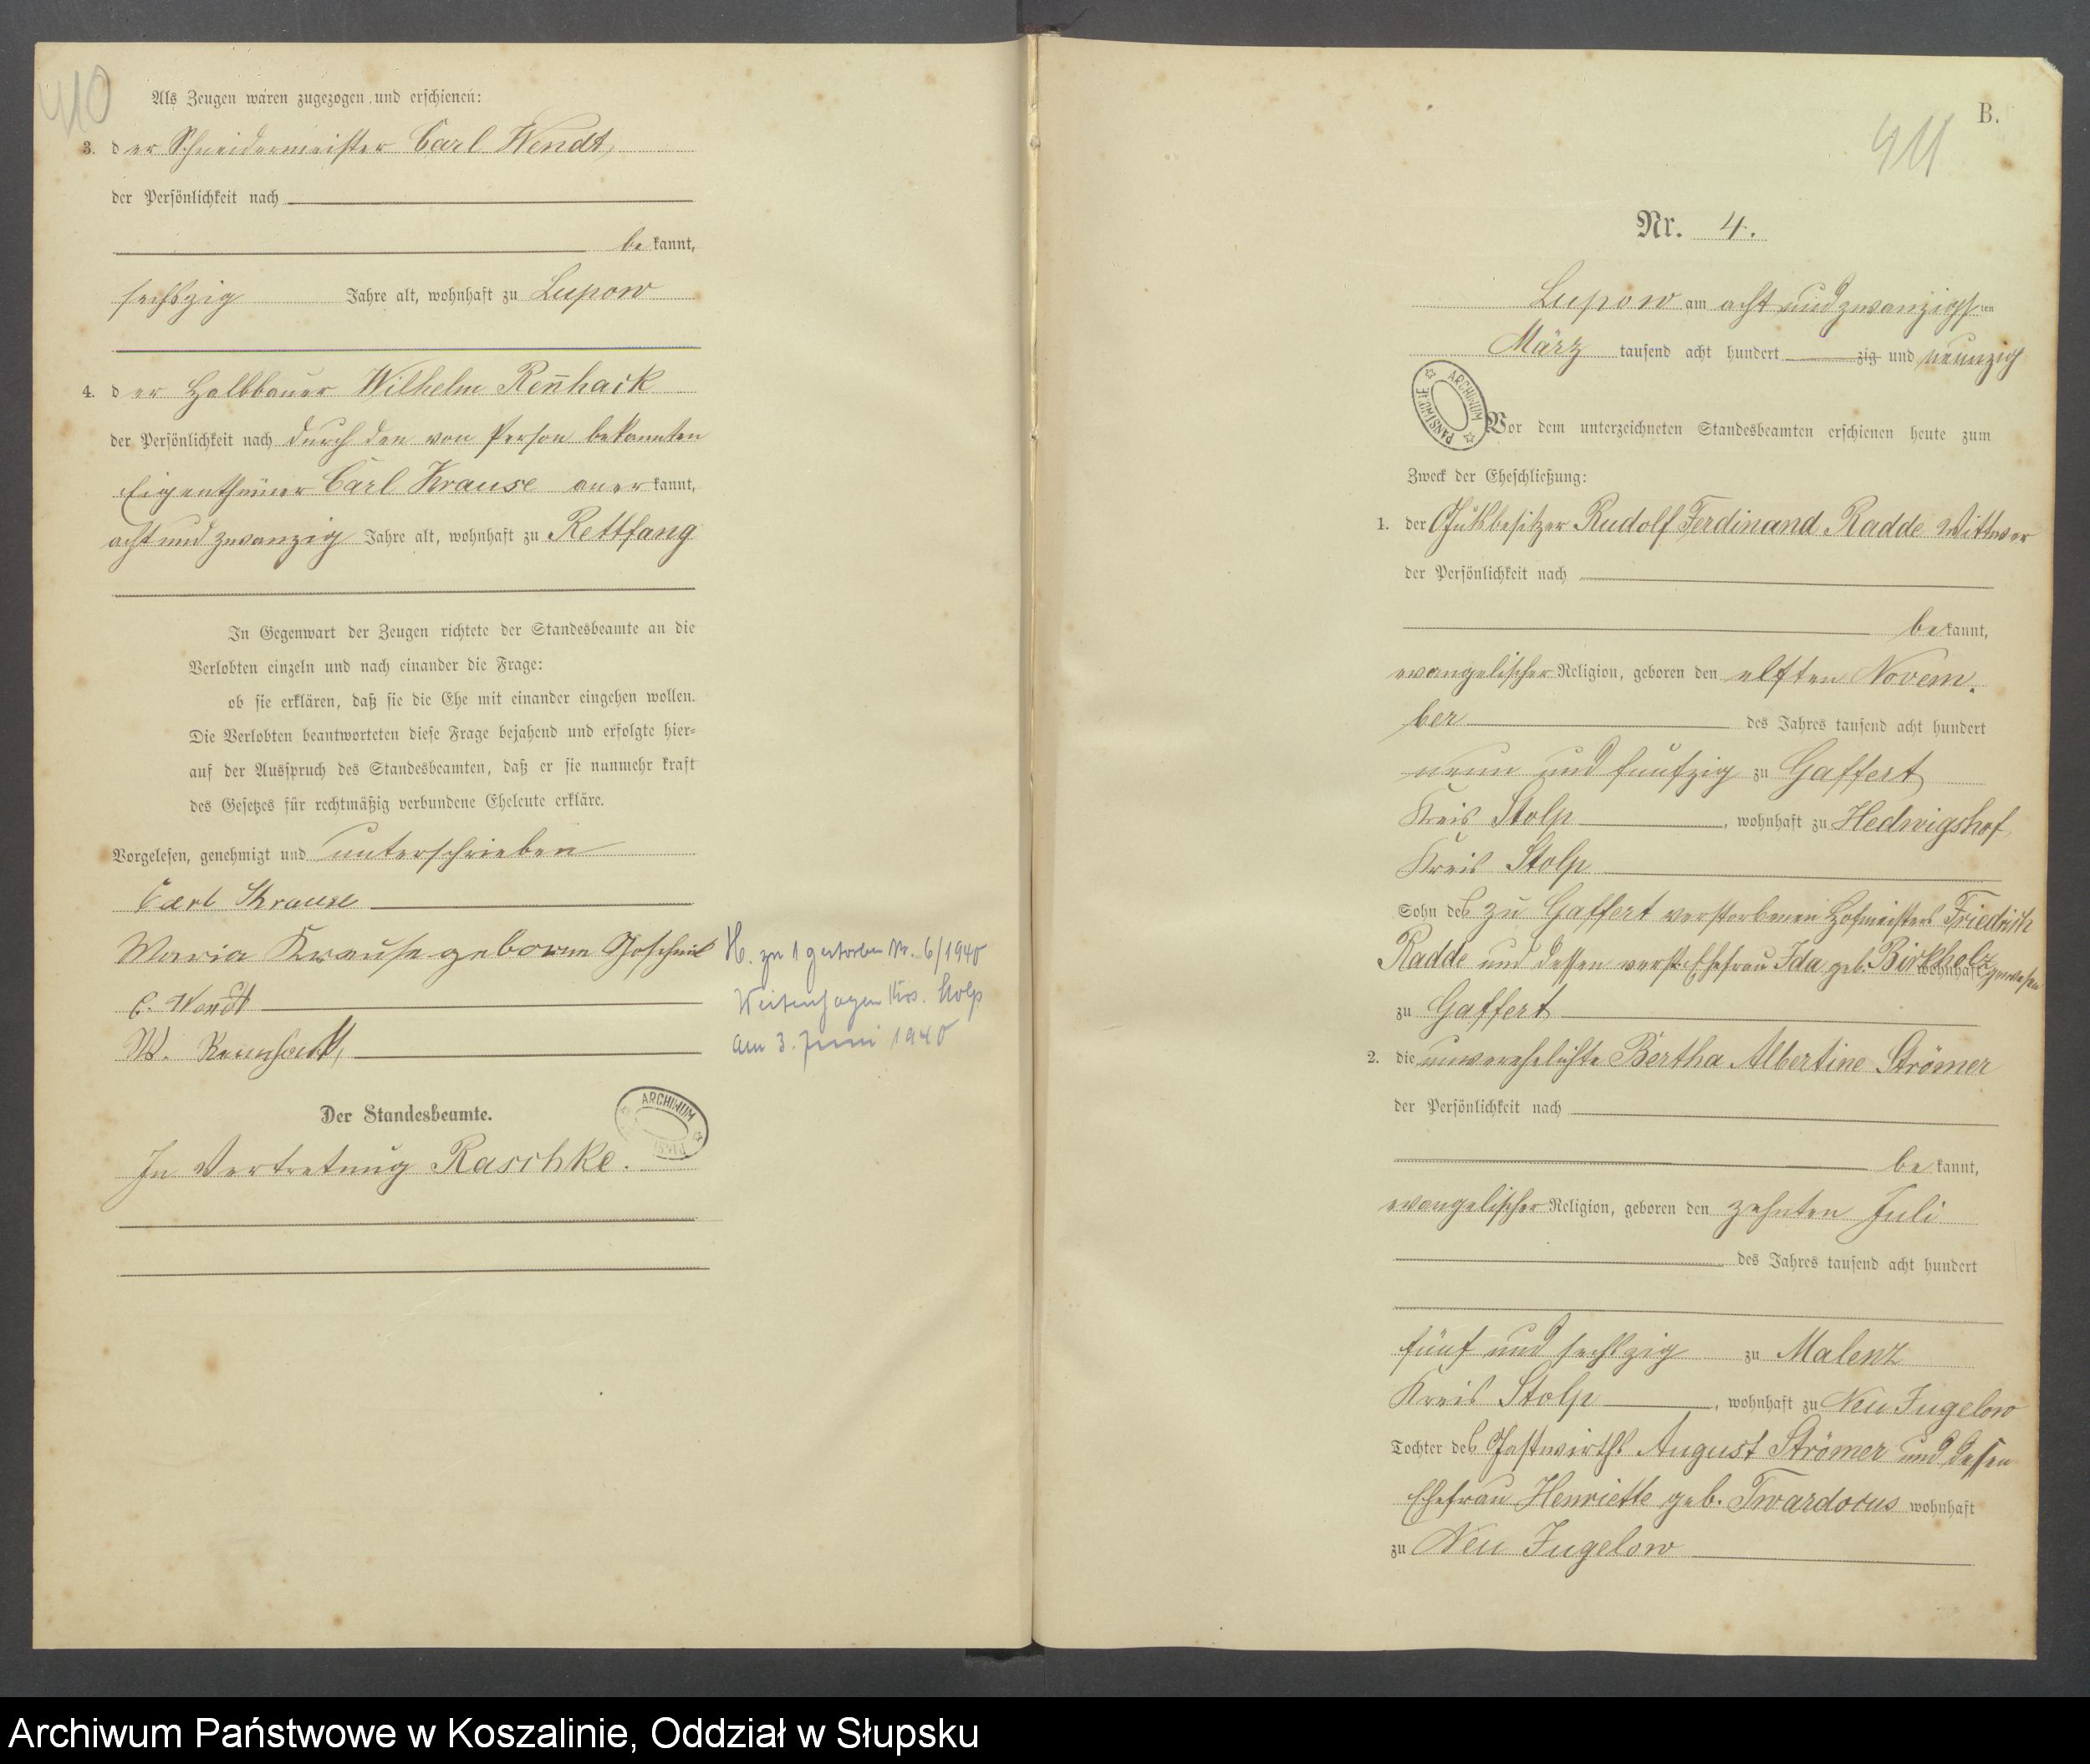 410
Als Zeugen waren zugezogen und erschienen:
3. der Schneidermeister Carl Wendt,
der Persönlichkeit nach
bekannt,
sechszig Jahre alt, wohnhaft zu Lupow
4. der Halbbauer Wilhelm Ren̄hack
der Persönlichkeit nach durch den von Person bekannten
Eigenthümer Carl Krause anerkannt,
acht und zwanzig Jahre alt, wohnhaft zu Rettfang
In Gegenwart der Zeugen richtete der Standesbeamte an die
Verlobten einzeln und nach einander die Frage:
ob sie erklären, daß sie die Ehe mit einander eingehen wollen.
Die Verlobten beantworteten diese Frage bejahend und erfolgte hier-
auf der Ausspruch des Standesbeamten, daß er sie nunmehr kraft
des Gesetzes für rechtmäßig verbundene Eheleute erkläre.
Vorgelesen, genehmigt und unterschrieben
Carl Krause
Maria Krause geborene
C. Wendt
W. Rennhack,
Der Standesbeamte.
In Vertretung Raschke.
H. zu 1 gestorben Nr. 6/1940
Weitenhagen Krs. Stolp
am 3. Juni 1940
ARCHIWUM
B.
411
Nr. 4.
Lupow am acht und zwanzigsten
März tausend acht hundert zig und neunzig
ARCHIWUM PAŃSTWOWE
Vor dem unterzeichneten Standesbeamten erschienen heute zum
Zweck der Eheschließung:
1. der Gutsbesitzer Rudolf Ferdinand Radde Wittwer
der Persönlichkeit nach
bekannt,
evangelischer Religion, geboren den elften Novem-
ber des Jahres tausend acht hundert
neun und fünfzig zu Gaffert
Kreis Stolp, wohnhaft zu Hedwigshof,
Kreis Stolp
Sohn des zu Gaffert verstorbenen Hofmeisters Friedrich
Radde und dessen verst. Ehefrau Ida geb. Birkholz wohnhaft gewesen
zu Gaffert
2. die unverehelichte Bertha Albertine Strömer
der Persönlichkeit nach
bekannt,
evangelischer Religion, geboren den zehnten Juli
des Jahres tausend acht hundert
fünf und sechszig zu Malenz
Kreis Stolp, wohnhaft zu Neu Jugelow
Tochter des Gastwirths August Strömer und dessen
Ehefrau Henriette geb. Twardocus wohnhaft
zu Neu Jugelow
Archiwum Państwowe w Koszalinie, Oddział w Słupsku